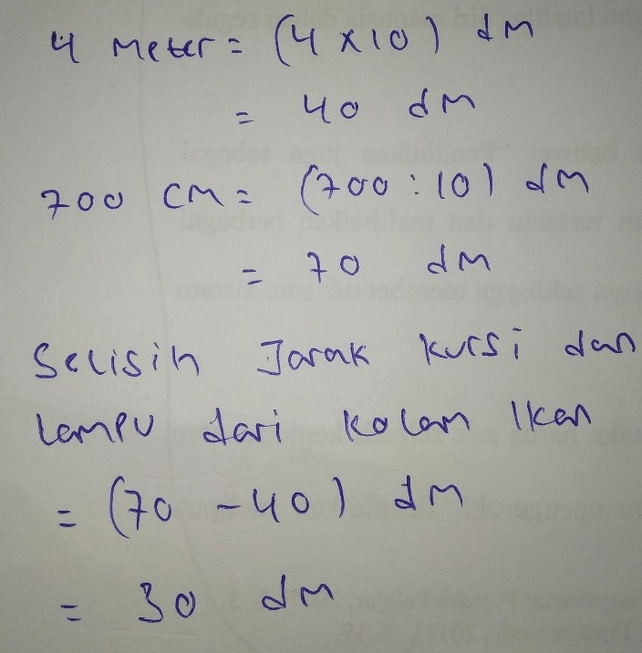 4 Meter = (4 x 10) dM
= 40 dM
700 CM = (700 : 10) dM
= 70 dM
Selisih Jarak kursi dan
Lampu dari kolam Ikan
= (70 - 40) dM
= 30 dM